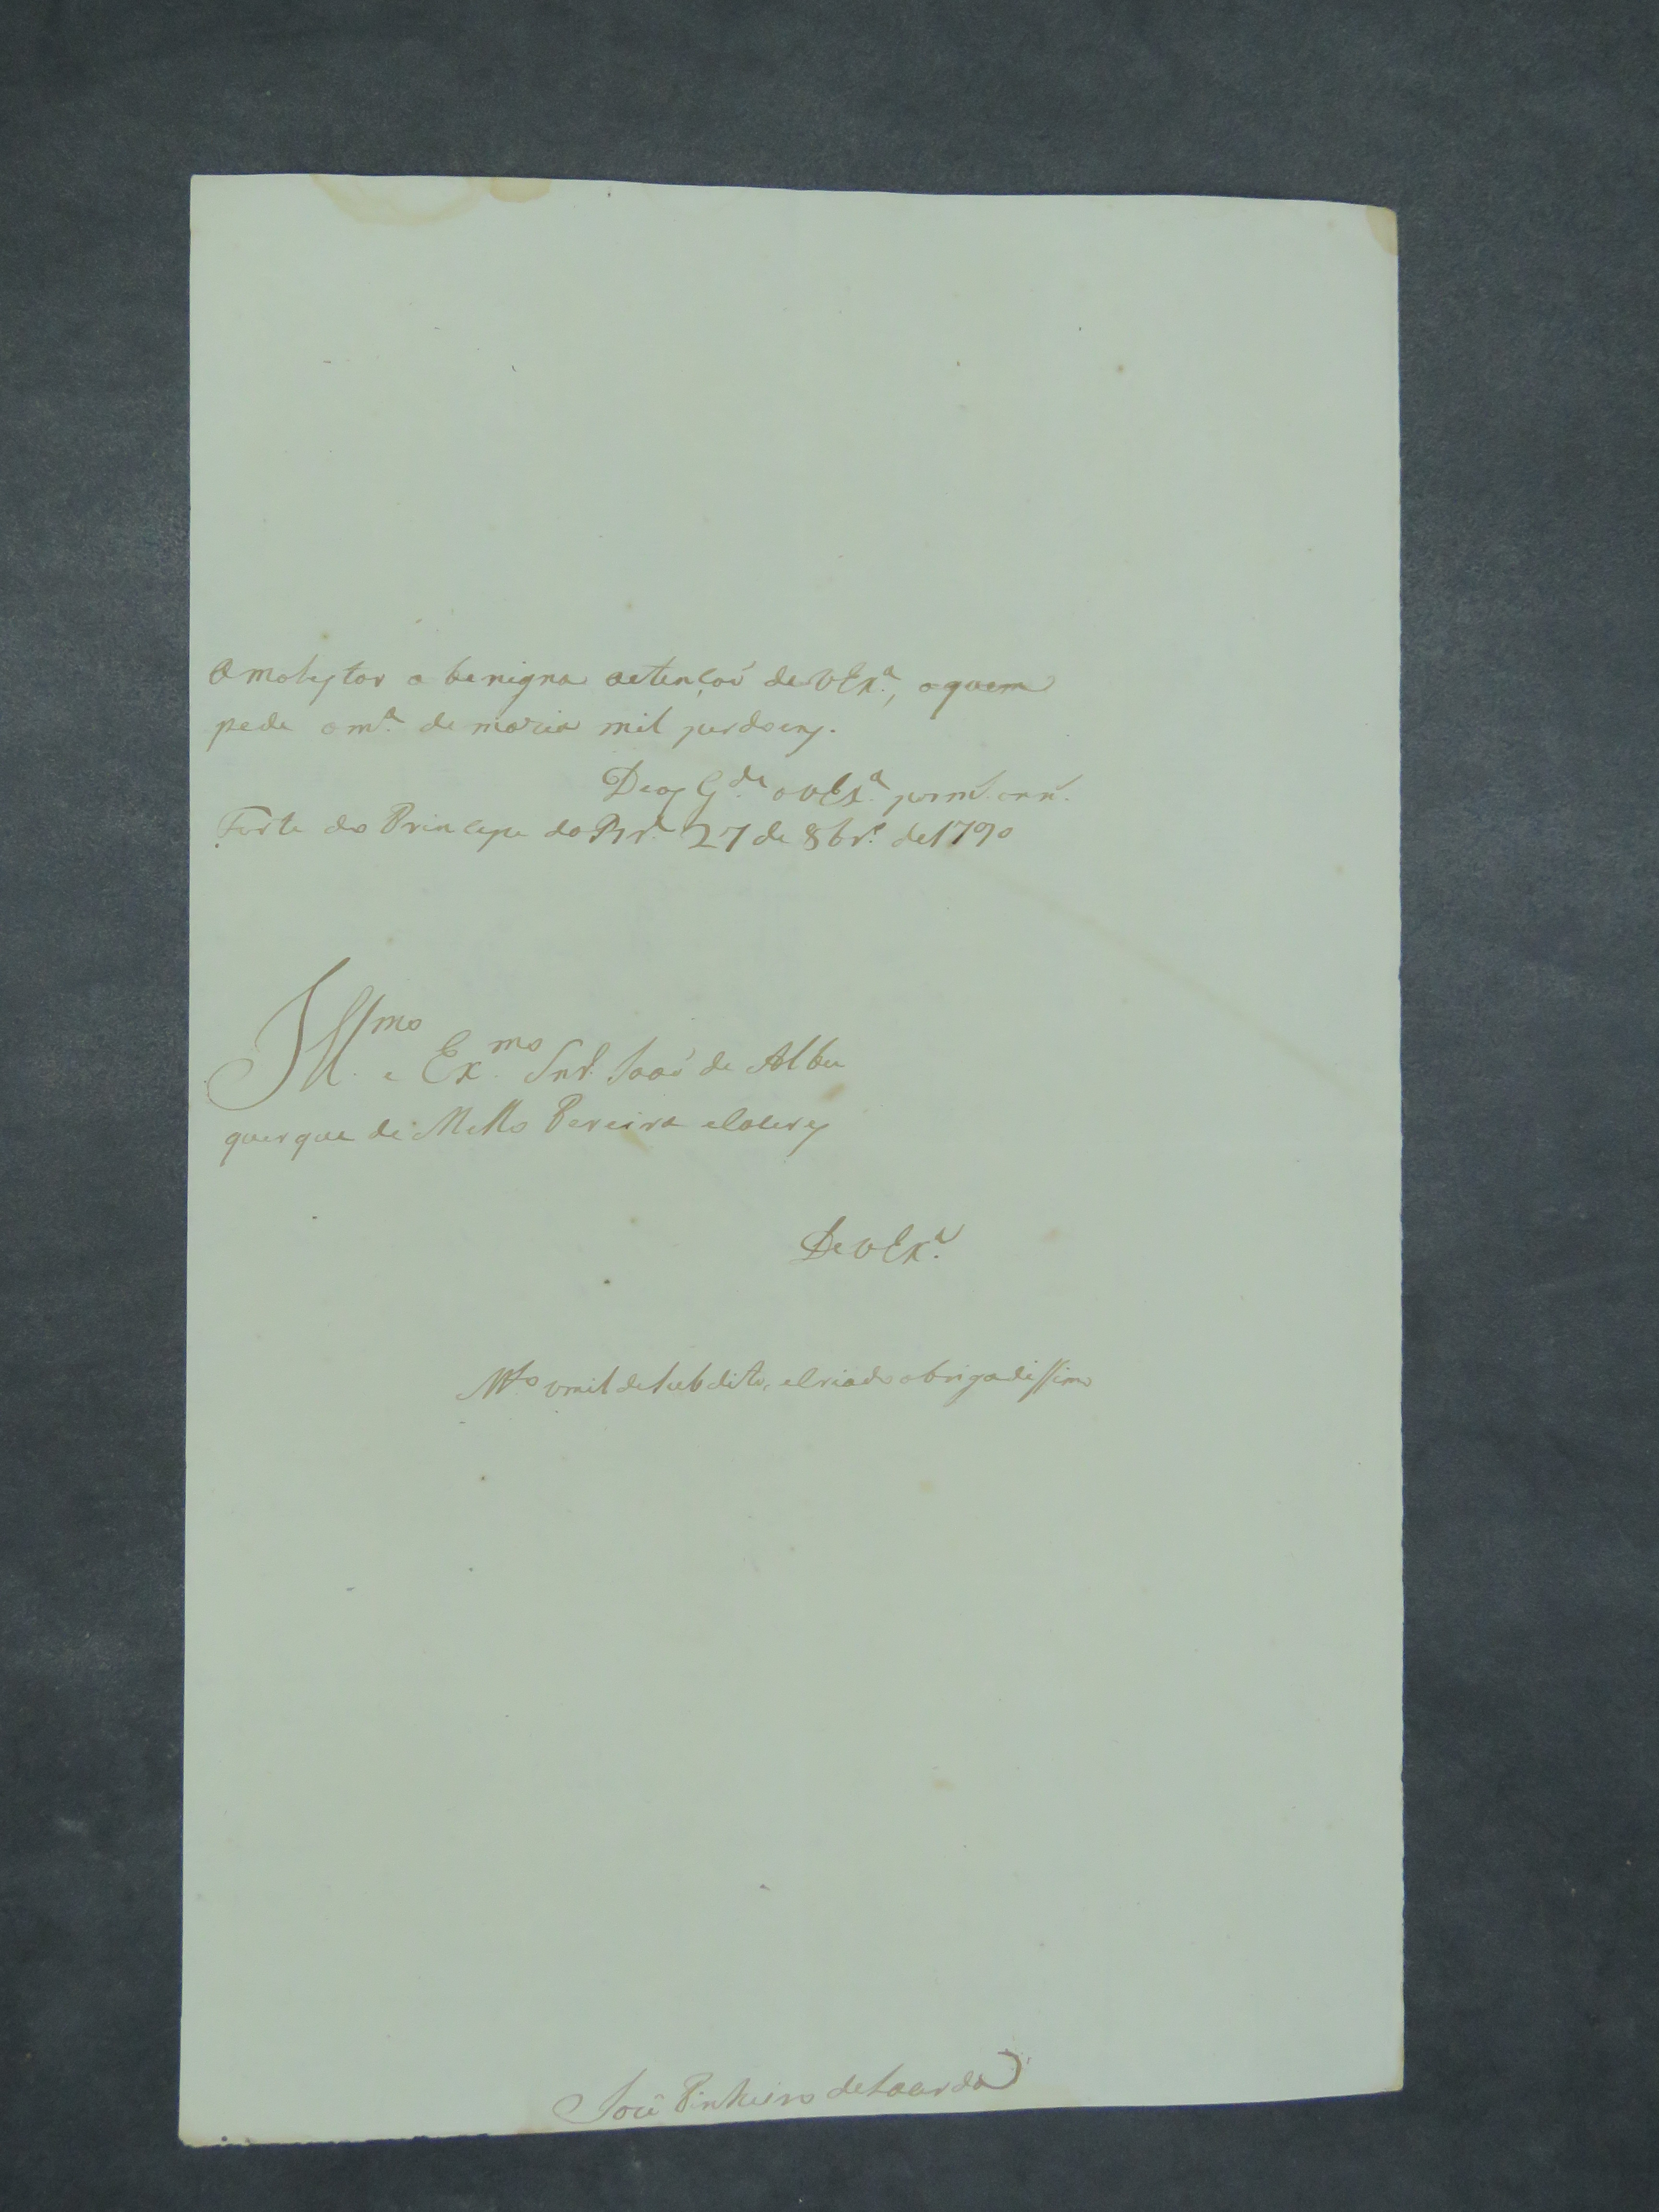 a molestar a benigna actençaõ de V Ex.ª, a quem
pede a m.ª de maria mil perdoens.
Deos G.de a V Ex.ª por m.s ann.s
Forte do Principe da Br.ª 27 de 8br.º de 1790
Ill.mo e Ex.mo Snr. Joaõ de Albu
querque de Mello Pereira e Caceres
De V Ex.ª
M.to umilde subdito, e Criado obrigadissimo
José Pinheiro de Lacerda